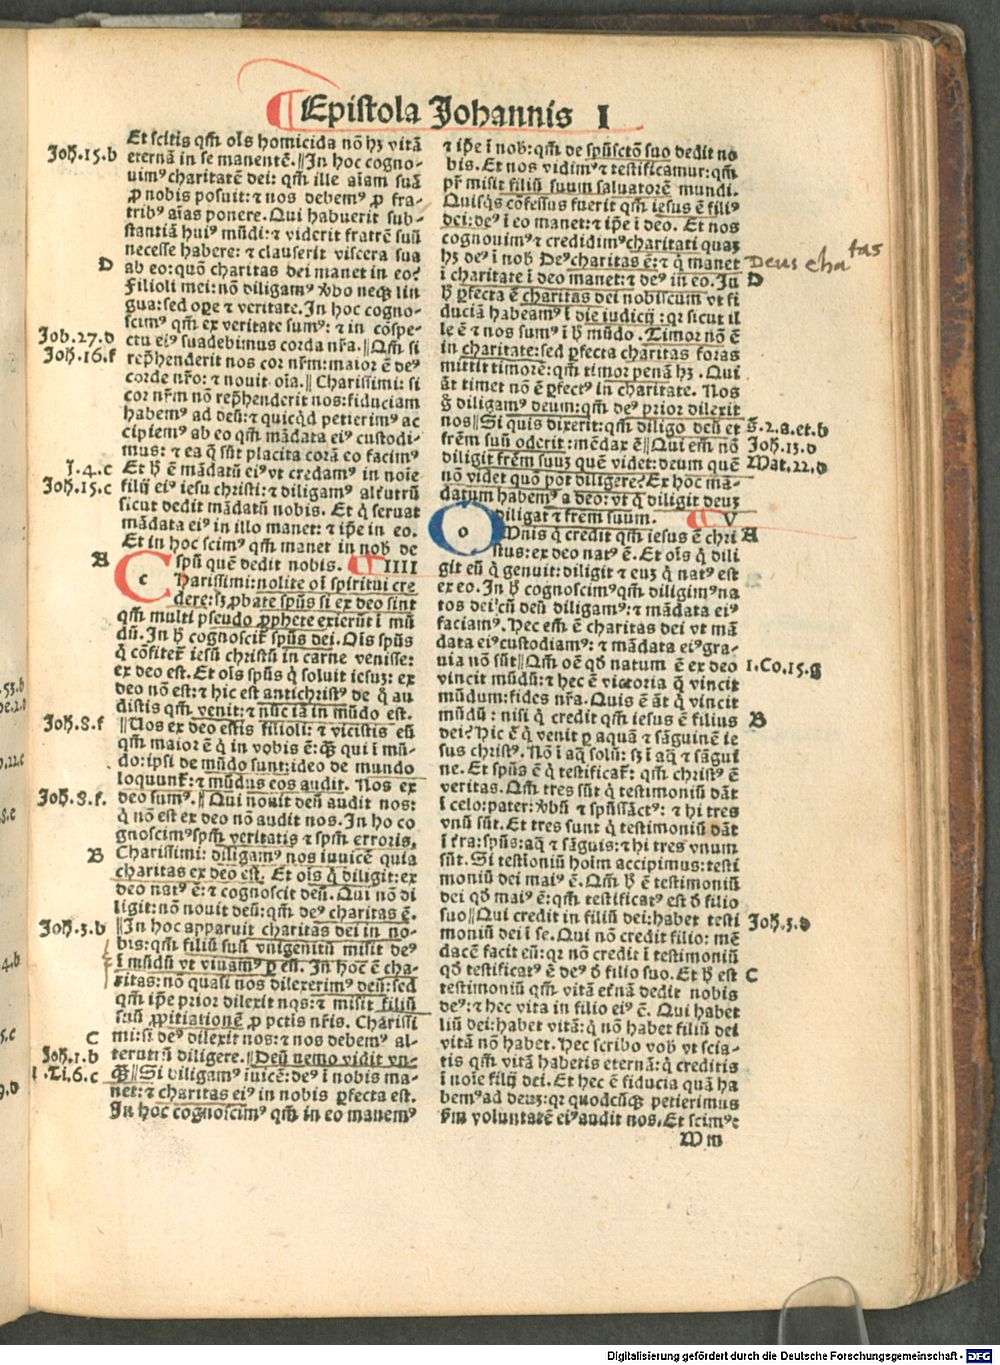 Epistola Johannis I
Et scitis qm̄ oīs homicida nō hʒ vitā
Joh̄.15.b
eternā in se manentē. ‖ In hoc cogno-
uimꝰ charitatē dei: qm̄ ille aīam suā
ꝓ nobis posuit: ⁊ nos debemꝰ ꝓ fra-
tribꝰ aīas ponere. Qui habuerit sub-
stantiā huiꝰ mūdi: ⁊ viderit fratrē suū
necesse habere: ⁊ clauserit viscera sua
D
ab eo: quō charitas dei manet in eo?
Filioli mei: nō diligamꝰ v̄bo neqʒ lin
gua: sed oꝑe ⁊ veritate. In hoc cogno-
scimꝰ qm̄ ex veritate sumꝰ: ⁊ in cōspe-
Job.27.d
ctu eiꝰ suadebimus corda nr̄a. ‖ Qm̄ si
Joh̄.16.f
rep̄henderit nos cor nr̄m: maior ē deꝰ
corde nr̄o: ⁊ nouit oīa. ‖ Charissimi: si
cor nr̄m nō rep̄henderit nos: fiduciam
habemꝰ ad deū: ⁊ quicq̄d petierimꝰ ac
cipiemꝰ ab eo qm̄ mādata eiꝰ custodi-
mus: ⁊ ea q̄ sūt placita corā eo facimꝰ
J.4.c
Et h̄ ē mādatū eiꝰ vt credamꝰ in noīe
Joh̄.15.c
filij eiꝰ iesu christi: ⁊ diligamꝰ alt̄utrū
sicut dedit mādatū nobis. Et q̄ seruat
mādata eiꝰ in illo manet: ⁊ ip̄e in eo.
Et in hoc scimꝰ qm̄ manet in nob̄ de
A
spū quē dedit nobis. ¶ IIII
Charissimi: nolite oī spiritui cre
dere: sʒ ꝓbate spūs si ex deo sint
qm̄ multi pseudo ꝓphete exierūt ī mū
dū. In h̄ cognoscit̄ spūs dei. Oīs spūs
q̄ cōfitet̄ iesū christū in carne venisse:
ex deo est. Et oīs spūs q̄ soluit iesuʒ: ex
deo nō est: ⁊ hic est antichristꝰ de q̄ au
distis qm̄ venit: ⁊ nūc iā in mūdo est.
Joh̄.8.f
‖ Uos ex deo estis filioli: ⁊ vicistis eū
qm̄ maior ē q̄ in vobis ē: q̄ʒ qui ī mū-
do: ipsi de mūdo sunt: ideo de mundo
loquunt̄: ⁊ mūdus eos audit. Nos ex
Joh̄.8.f.
deo sumꝰ. ‖ Qui nouit deū audit nos:
q̄ nō est ex deo nō audit nos. In ho co
gnoscimꝰ spm̄ veritatis ⁊ spm̄ erroris.
B
Charissimi: diligamꝰ nos iuuicē quia
charitas ex deo est. Et oīs q̄ diligit: ex
deo natꝰ ē: ⁊ cognoscit deū. Qui nō di
ligit: nō nouit deū: qm̄ deꝰ charitas ē.
Joh̄.3.b
‖ In hoc apparuit charitas dei in no-
bis: qm̄ filiū suū vnigenitū misit deꝰ
ī mūdū vt viuamꝰ ꝑ eū. In hoc ē cha-
ritas: nō quasi nos dilexerimꝰ deū: sed
qm̄ ip̄e prior dilexit nos: ⁊ misit filiū
suū ꝓpitiationē ꝓ pctis nr̄is. Charissi
C
mi: si deꝰ dilexit nos: ⁊ nos debemꝰ al-
Joh̄.1.b
terutrū diligere. ‖ Deū nemo vidit vn-
1.Ti.6.c
q̄ʒ ‖ Si diligamꝰ iuicē: deꝰ ī nobis ma-
net: ⁊ charitas eiꝰ in nobis ꝑfecta est.
In hoc cognoscimꝰ qm̄ in eo manemꝰ
⁊ ip̄e ī nob̄: qm̄ de spūsctō suo dedit no
bis. Et nos vidimꝰ ⁊ testificamur: qm̄
pr̄ misit filiū suum saluatorē mundi.
Quisq̄s cōfessus fuerit qm̄ iesus ē filiꝰ
dei: deꝰ ī eo manet: ⁊ ip̄e ī deo. Et nos
cognouimꝰ ⁊ credidimꝰ charitati quaʒ
hʒ deꝰ ī nob̄ Deꝰ charitas ē: ⁊ q̄ manet
Deus chatas
ī charitate ī deo manet: ⁊ deꝰ in eo. In
D
h̄ ꝑfecta ē charitas dei nobiscum vt fi
duciā habeamꝰ ī die iudicij: qr sicut il
le ē ⁊ nos sumꝰ ī h̄ mūdo. Timor nō ē
in charitate: sed ꝑfecta charitas foras
mittit timorē: qm̄ timor penā hʒ. Qui
āt timet nō ē ꝑfectꝰ in charitate. Nos
g̊ diligamꝰ deum: qm̄ deꝰ prior dilexit
nos ‖ Si quis dixerit: qm̄ diligo deū et
S.2.a.et.b
frēm suū oderit: mēdax ē ‖ Qui em̄ nō
Joh̄.13.d
diligit frēm suuʒ quē videt: deum quē
Mat.22.d
nō videt quō pōt diligere? Ex hoc mā-
datum habemꝰ a deo: vt q̄ diligit deuʒ
diligat ⁊ frēm suum. ¶ V
Omnis q̄ credit qm̄ iesus ē chri
A
stus: ex deo natꝰ ē. Et oīs q̄ dili
git eū q̄ genuit: diligit ⁊ euʒ q̄ natꝰ est
ex eo. In h̄ cognoscimꝰ qm̄ diligimꝰ na
tos dei: cū deū diligamꝰ: ⁊ mādata eiꝰ
faciamꝰ. Hec em̄ ē charitas dei vt mā
data eiꝰ custodiamꝰ: ⁊ mādata eiꝰ gra-
uia nō sūt ‖ Qm̄ oē qd̄ natum ē ex deo
1.Co.15.g
vincit mūdū: ⁊ hec ē victoria q̄ vincit
mūdum: fides nr̄a. Quis ē āt q̄ vincit
mūdū: nisi q̄ credit qm̄ iesus ē filius
B
dei? Hic ē q̄ venit ꝑ aquā ⁊ sāguinē ie
sus christꝰ. Nō ī aq̄ solū: sʒ ī aq̄ ⁊ sāgui
ne. Et spūs ē q̄ testificat̄: qm̄ christꝰ ē
veritas. Qm̄ tres sūt q̄ testimoniū dāt
ī celo: pater: v̄bū ⁊ spūssāctꝰ: ⁊ hi tres
vnū sūt. Et tres sunt q̄ testimoniū dāt
ī t̄ra: spūs: aq̄ ⁊ sāguis: ⁊ hi tres vnum
sūt. Si testīoniū hoīm accipimus: testi
moniū dei maiꝰ ē. Qm̄ h̄ ē testimoniū
dei qd̄ maiꝰ ē: qm̄ testificatꝰ est d̄ filio
suo ‖ Qui credit in filiū dei: habet testi
Joh̄.3.d
moniū dei ī se. Qui nō credit filio: mē
dacē facit eū: qr nō credit ī testimoniū
qd̄ testificatꝰ ē deꝰ d̄ filio suo. Et h̄ est
C
testimoniū qm̄ vitā et̄nā dedit nobis
deꝰ: ⁊ hec vita in filio eiꝰ ē. Qui habet
liū dei: habet vitā: q̄ nō habet filiū dei
vitā nō habet. Hec scribo vob̄ vt scia-
tis qm̄ vitā habetis eternā: q̄ creditis
ī noīe filij dei. Et hec ē fiducia quā ha
bemꝰ ad deuʒ: qr quodcūqʒ petierimus
s̄m voluntatē eiꝰ audit nos. Et scimꝰ:
Mm
Digitalisierung gefördert durch die Deutsche Forschungsgemeinschaft - DFG